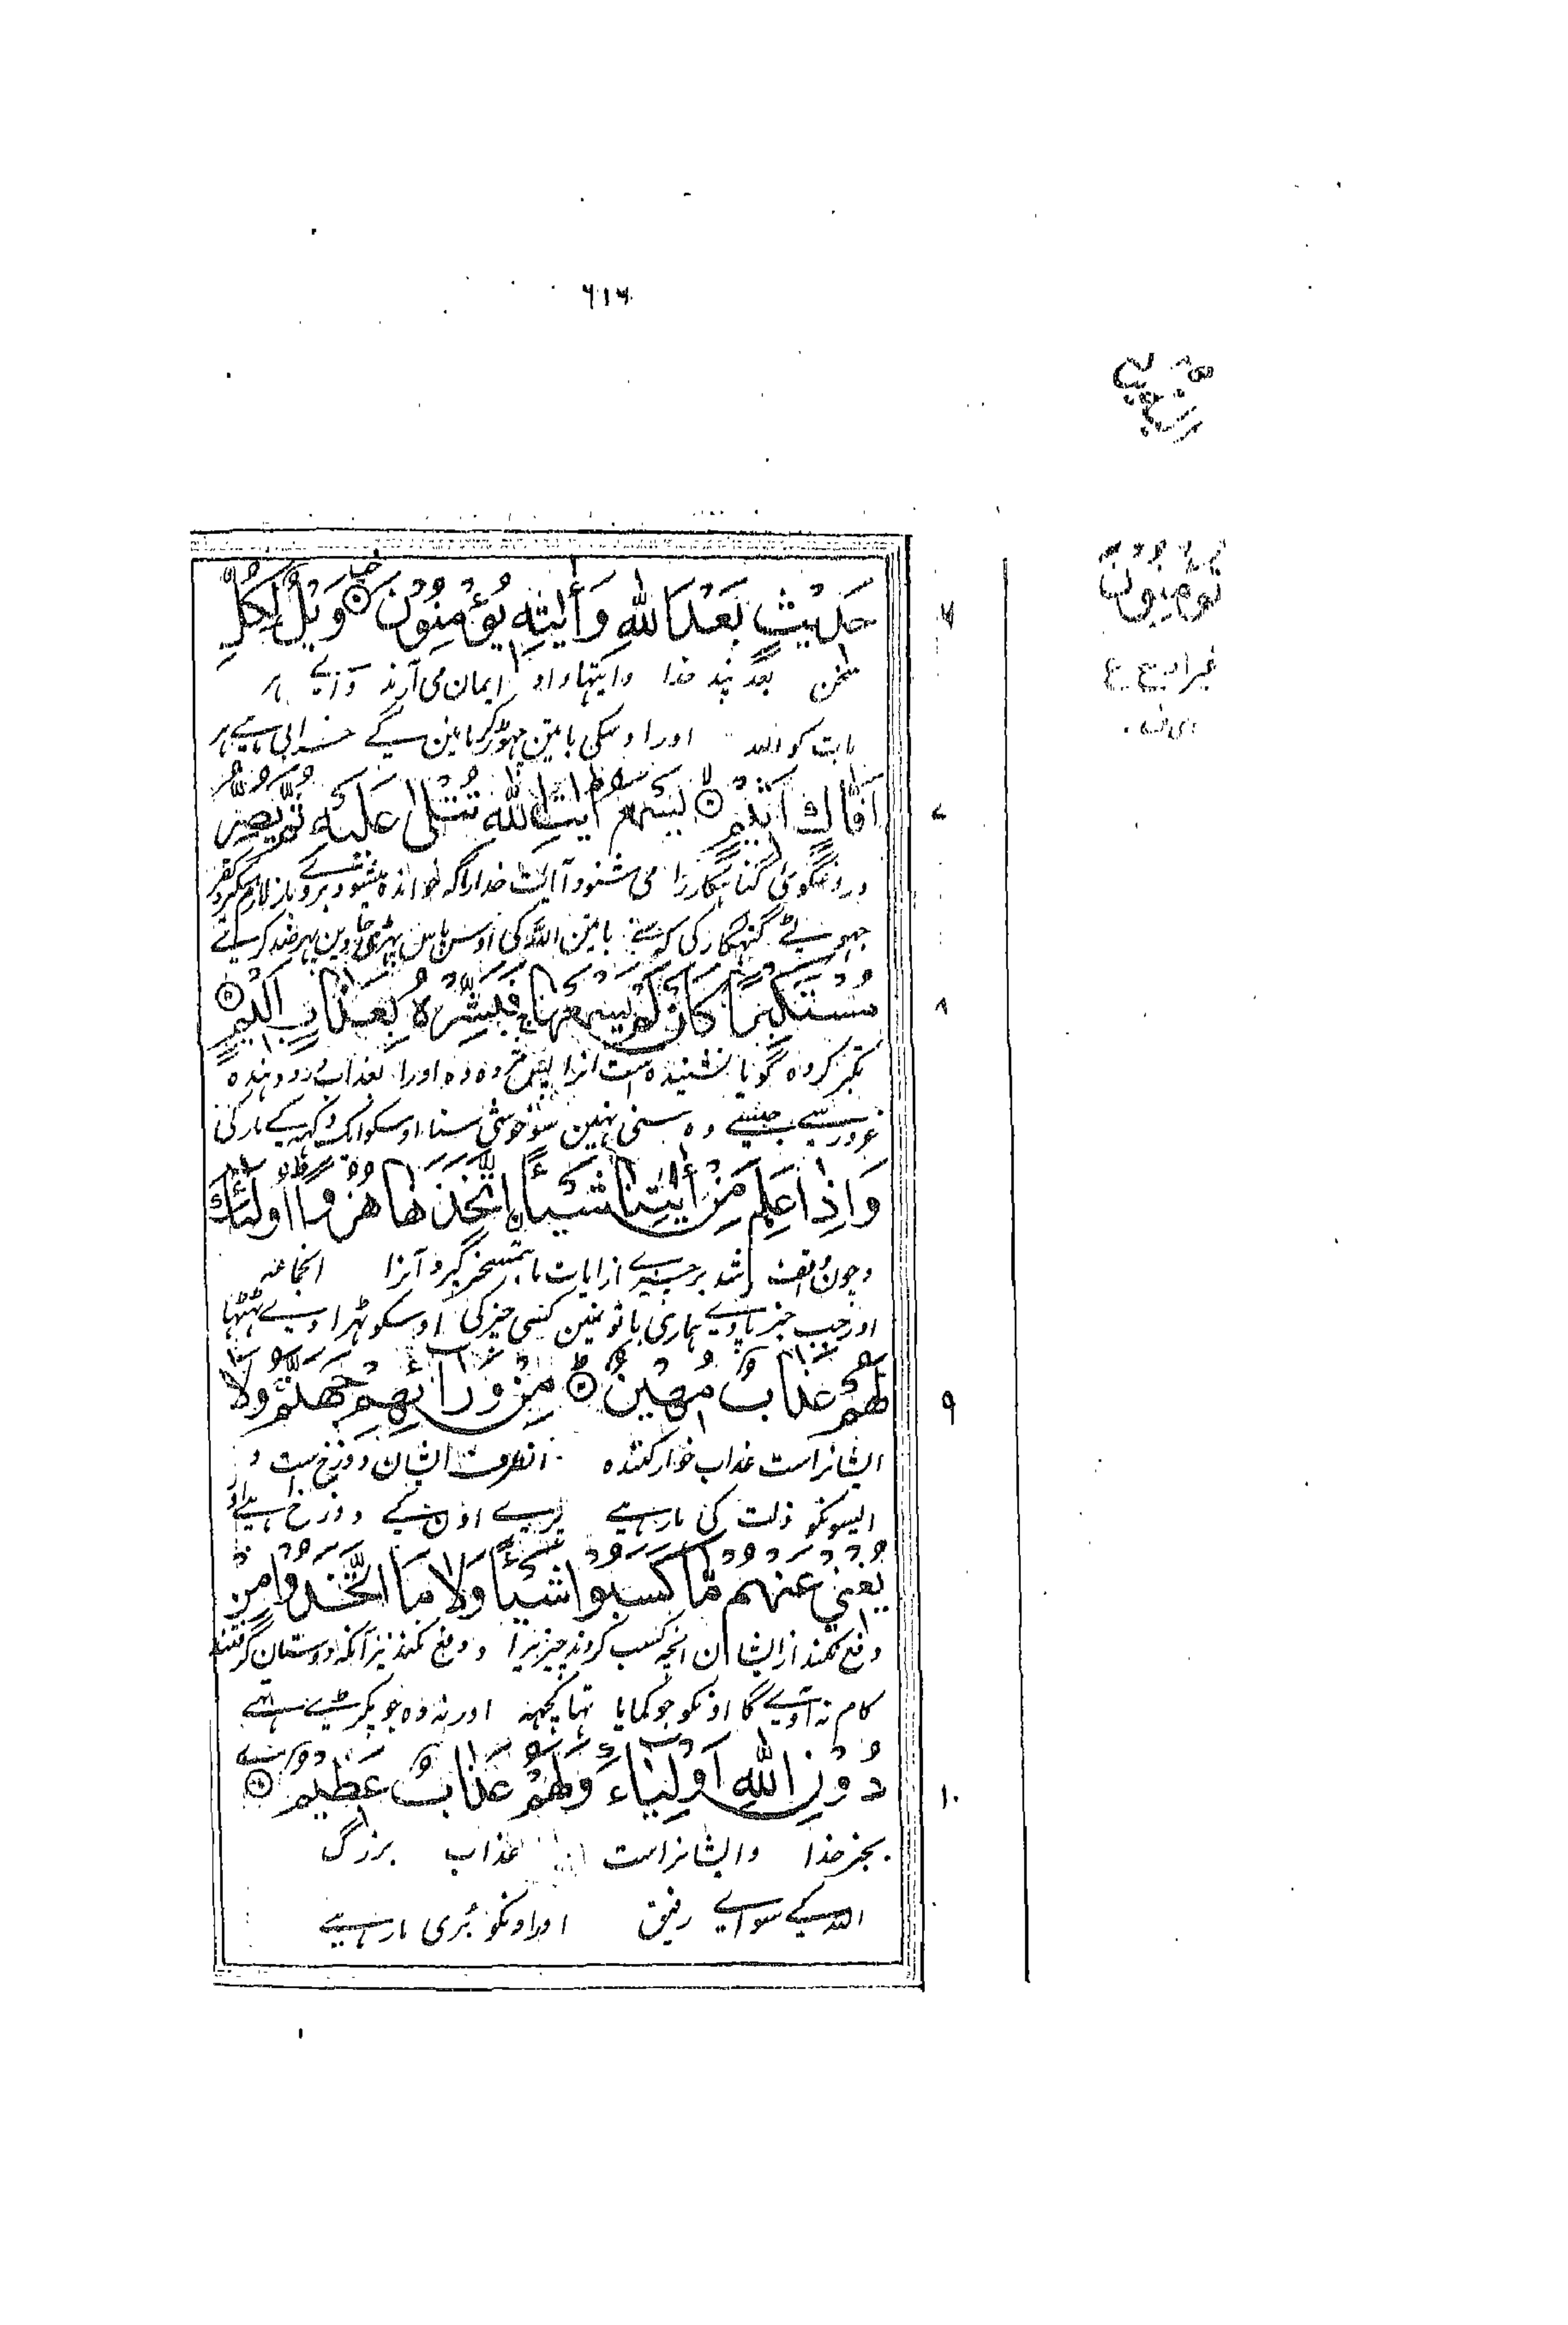 ٦١٦
حَدِيْثٍ بَعْدَ اللّٰهِ وَاٰيٰتِهٖ يُؤْمِنُوْنَ ۞ وَيْلٌ لِّكُلِّ
سخن بعد پند خدا و ایتها و او ایمان می آرند وای ہر
بات کو اللہ اور اوسکی باتین چهوڑکر مانین گے خرابی ہے ہر
اَفَّاكٍ اَثِيْمٍ ۞ يَسْمَعُ اٰيٰتِ اللّٰهِ تُتْلٰى عَلَيْهِ ثُمَّ يُصِرُّ
دروغگوی گناہگار را می شنود آیات خدا را که خوانده میشود برو باز لازم میگیرد کفر
جهوٹے گنہگار کی کہ سنے باتین اللہ کی اوس پاس پڑهی جاوین پہر ضد کرے
مُسْتَكْبِرًا كَاَنْ لَّمْ يَسْمَعْهَا ج فَبَشِّرْهُ بِعَذَابٍ اَلِيْمٍ ۞
تکبر کرده گویا نشنیده است انرا پس مژده ده اورا بعذاب درد دهنده
غرور سے جیسے وہ سنی نہین سو خوشی سنا اوسکو ایک دکهہ کے مار کی
وَاِذَا عَلِمَ مِنْ اٰيٰتِنَا شَيْـًٔا اتَّخَذَهَا هُزُوًا ط اُولٰٓئِكَ
و چون واقف شد بر چیزے از ایات ما بتمسخر گیرد آنرا انجماعه
اور جب خبر پاوے ہماری باتونمین کسی چیز کی اوسکو ٹہراوے ٹہٹہا
لَهُمْ عَذَابٌ مُّهِيْنٌ ۞ مِنْ وَّرَآئِهِمْ جَهَنَّمُ وَلَا
ایشانراست عذاب خوار کننده انطرف ایشان دوزخ ست و
ایسونکو ذلت کی مار ہے پرے اون کے دوزخ ہے اور
يُغْنِيْ عَنْهُمْ مَّا كَسَبُوْا شَيْـًٔا وَّلَا مَا اتَّخَذُوْا مِنْ
دفع نکند از ایشان انچه کسب کردند چیزیرا و دفع نکند نیز آنکه دوستان گرفتند
کام نہ آویگا اونکو جو کمایا تہا کچہہ اور نہ وہ جو پکڑے تہے
دُوْنِ اللّٰهِ اَوْلِيَآءَ ج وَلَهُمْ عَذَابٌ عَظِيْمٌ ۞
بجز خدا و ایشانراست عذاب بزرگ
اللہ کے سوائے رفیق اور اونکو بڑی مار ہے
تُؤْمِنُوْنَ
٦
٧
٨
٩
١٠